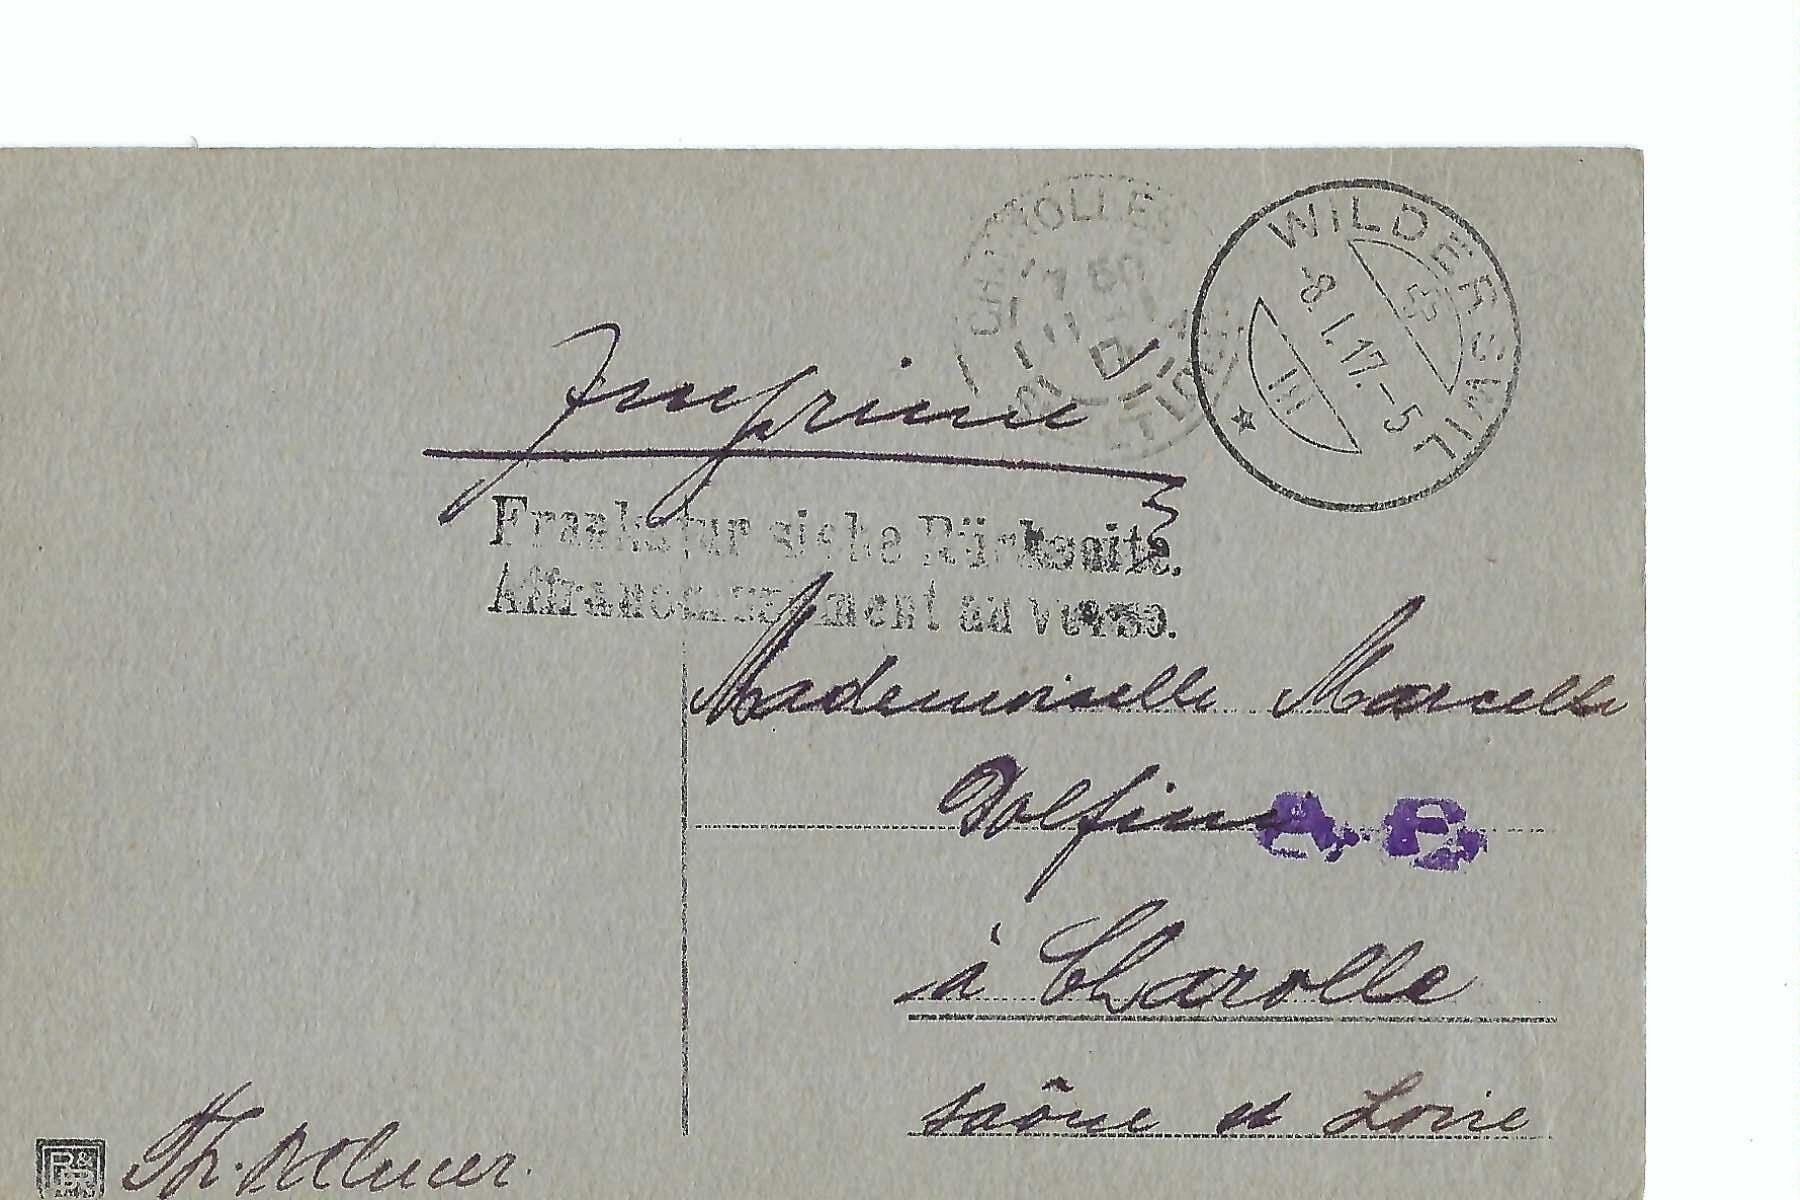 CHAROLLES
7 50
11 -1
17
WILDERSWIL
-8.I.17.-5
III
Imprimé
Frankatur siehe Rückseite.
Affranchissement au verso.
Mademoiselle Marcelle
Dolfin
A.E
à Charolle
Saône et Loire
Th.
R&